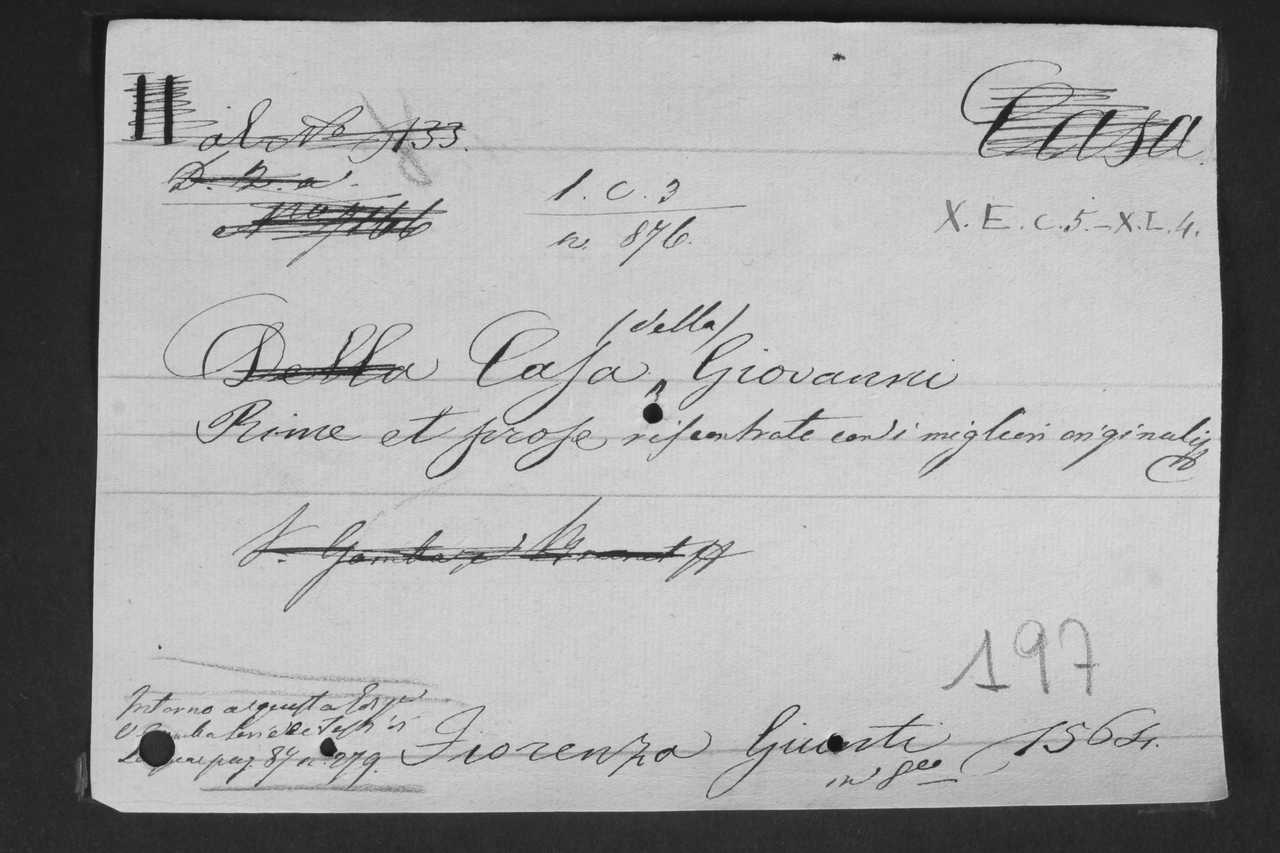 al No 133.
Casa
D. 2. a.
No 166
1. C. 3
n. 876.
X. E. C. 5. – X. L. 4.
(della)
Della Casa, Giovanni
Rime et prose riscontrate con i migliori originali
V. Gamba e Brunet
197
Intorno a questa Ediz.e
V. Gamba Serie de Testi di
Lingua pag. 87 n. 279.
Fiorenza Giunti 1564.
in 8vo